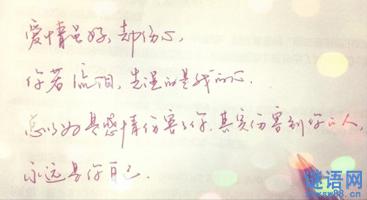 爱情虽好,却伤心,
你若流泪,先湿的是我的心.
总以为是感情伤害了你,其实伤害到你的人,
永远是你自己.
谜语网
www.cmy88.cn